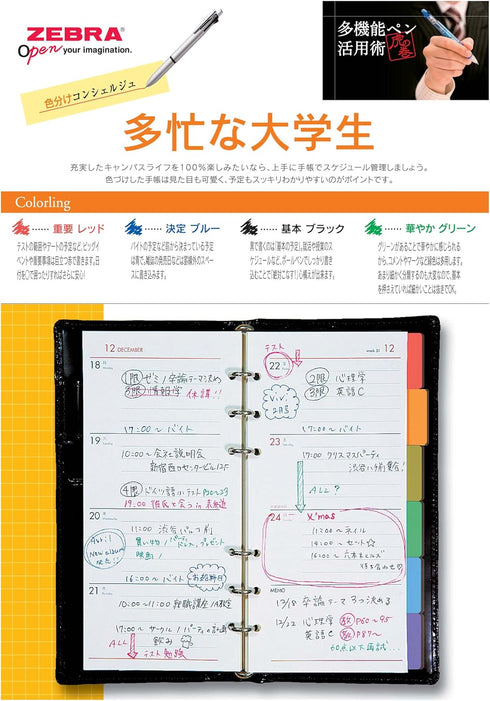 ZEBRA
Open your imagination.
多機能ペン
活用術
虎の巻
色分けコンシェルジュ
多忙な大学生
充実したキャンパスライフを100%楽しみたいなら、上手に手帳でスケジュール管理しましょう。
色づけした手帳は見た目も可愛く、予定もスッキリわかりやすいのがポイントです。
Colorling
重要 レッド
テストの範囲やデートの予定など、ビッグイ
ベントや重要事項は目立つ赤で書きます。日
付を○で囲ったりすればさらに安心!
決定 ブルー
バイトの予定など前から決まっている予定
は青で。雑誌の発売日などは罫線外のスペー
スに書き込みます。
基本 ブラック
黒で書くのは「基本の予定」。就活や授業のス
ケジュールなど、ボールペンでしっかり書き
込むことで「絶対こなす!」心構えが出来ます。
華やか グリーン
グリーンがあることで華やかに感じられる
から、コメントやマークなど緑色は多用します。
あまり細かく分類するのも大変なので、基本
を押さえていれば細かいことは抜きでOK。
12 DECEMBER
18
1限 ゼミ / 卒論テーマ決め
3限 情報学 休講!!
17:00〜 バイト
19
10:00〜 会社説明会
新宿西口センタービル12F
4限 ドイツ語 小テスト P20〜23
19:00 彼氏と会う in 表参道
20
11:00 渋谷
買い物! パーティドレス、プレゼント
映画!
New album
発売!!
16:00〜 バイト
お給料日
21
10:00〜11:00 就職講座
17:00〜 サークル / パーティの計画
飲み
ALL
テスト勉強
week 51 12
テスト
22
2限 心理学
3限 英語C
ViVi
2月号
17:00〜 バイト
23
17:00 クリスマスパーティ
渋谷ハチ前集合!
ALL?
24
X'mas
11:00〜 ネイル
14:00〜 セット
16:00〜 六本木ヒルズ
待ち合わせ
MEMO
12/18 卒論テーマ 3つ決める
12/22 心理学 教 P60〜95
英語C 教 P87〜
60点以下再試…